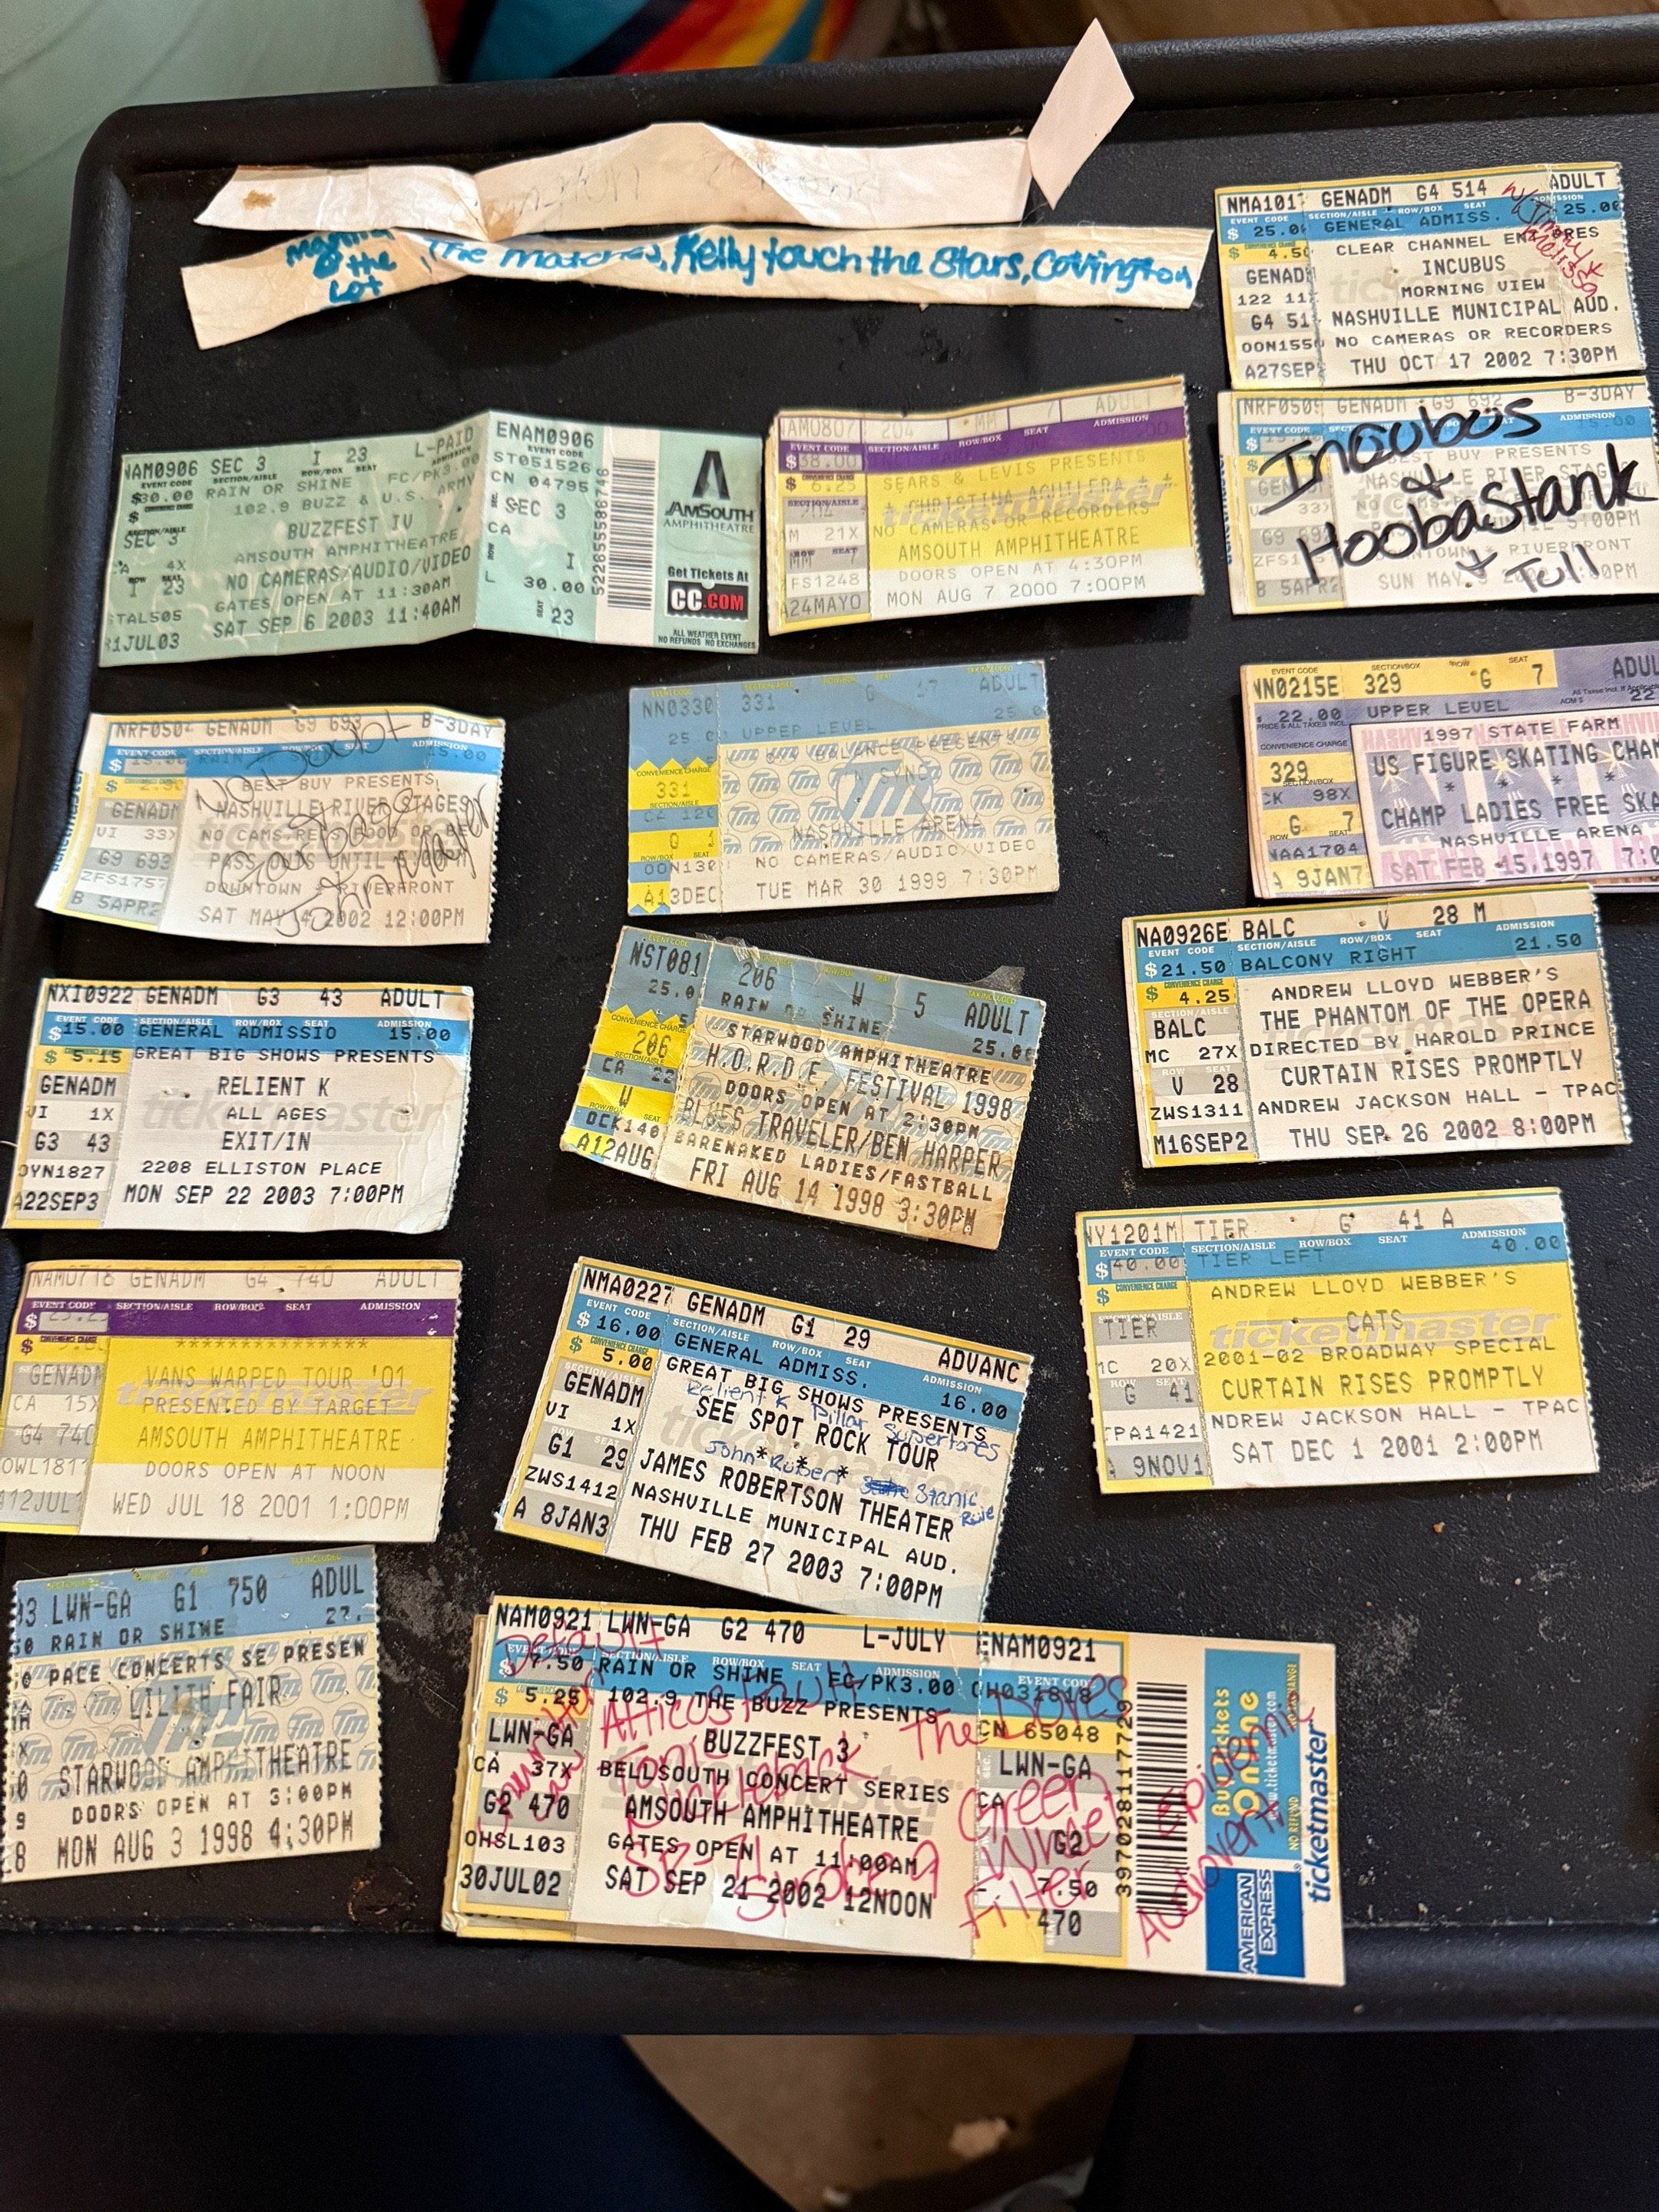 Manilla
& the
Lot
The matches, Kelly touch the Stars, Covington
NMA101 GENADM G4 514 ADULT
EVENT CODE SECTION/AISLE ROW/BOX SEAT ADMISSION
$ 25.0 GENERAL ADMISS. 25.00
CONVENIENCE CHARGE
$ 4.50 CLEAR CHANNEL EN
GENAD INCUBUS
122 11 MORNING VIEW
G4 51 NASHVILLE MUNICIPAL AUD.
OON155 NO CAMERAS OR RECORDERS
A27SEP THU OCT 17 2002 7:30PM
w/
NAM0906 SEC 3 I 23 L-PAID
EVENT CODE SECTION/AISLE ROW/BOX SEAT ADMISSION
$30.00 RAIN OR SHINE FC/PK3.00
102.9 BUZZ & U.S. ARMY
SEC 3 BUZZFEST IV
CA 4X AMSOUTH AMPHITHEATRE
I 23 NO CAMERAS/AUDIO/VIDEO
STAL505 GATES OPEN AT 11:30AM
31JUL03 SAT SEP 6 2003 11:40AM
ENAM0906
EVENT CODE
ST051526
CN 04795
SEC 3
CA
ROW I
L 30.00
SEAT 23
522855598746
AMSOUTH
AMPHITHEATRE
Get Tickets At
CC.COM
ALL WEATHER EVENT
NO REFUNDS NO EXCHANGES
NAM0807 204 MM 7 ADULT
EVENT CODE SECTION/AISLE ROW/BOX SEAT ADMISSION
$ 38.00
$ 6.25 SEARS & LEVIS PRESENTS
SECTION/AISLE CHRISTINA AGUILERA
21X NO CAMERAS OR RECORDERS
MM 7 AMSOUTH AMPHITHEATRE
FS1248 DOORS OPEN AT 4:30PM
A24MAY0 MON AUG 7 2000 7:00PM
NRF0505 GENADM G9 692 B-3DAY
ADMISSION
15.00
BEST BUY PRESENTS
NASHVILLE RIVER STAGES
Incubus
&
Hoobastank
+ Tull
G9 69
B 5APR2 SUN MAY
RIVERFRONT
NRF0504 GENADM G9 693 B-3DAY
EVENT CODE SECTION/AISLE ROW/BOX SEAT ADMISSION
$ 15.00 RAIN OR SHINE 15.00
BEST BUY PRESENTS
GENADM NASHVILLE RIVER STAGES
VI 33X NO CAMS FOOD OR BE
G9 693 PASS OUTS UNTIL
ZFS175 DOWNTOWN RIVERFRONT
B 5APR2 SAT MAY 4 2002 12:00PM
No Doubt
Garbage
John Mayer
NN0330 331 G 17 ADULT
25.0 UPPER LEVEL 25.0
CONVENIENCE CHARGE
331
SECTION/AISLE N SYNC
CA 120
G 1 NASHVILLE ARENA
ROW/BOX SEAT
OON130 NO CAMERAS/AUDIO/VIDEO
A13DEC TUE MAR 30 1999 7:30PM
EVENT CODE SECTION/BOX ROW SEAT
NN0215E 329 G 7 ADUL
PRICE & ALL TAXES INCL.
$ 22.00 UPPER LEVEL 22
CONVENIENCE CHARGE 1997 STATE FARM
329 US FIGURE SKATING CHAM
SECTION/BOX
CK 98X CHAMP LADIES FREE SKA
G 7 NASHVILLE ARENA
NAA1704 SAT FEB 15,1997 7:0
A 9JAN7
NXI0922 GENADM G3 43 ADULT
EVENT CODE SECTION/AISLE ROW/BOX SEAT ADMISSION
$15.00 GENERAL ADMISSIO 15.00
$ 5.15 GREAT BIG SHOWS PRESENTS
GENADM RELIENT K
VI 1X ALL AGES
G3 43 EXIT/IN
DYN1827 2208 ELLISTON PLACE
A22SEP3 MON SEP 22 2003 7:00PM
EVENT CODE ROW/BOX SEAT TAX INCLUDED
NST081 206 W 5 ADULT
25.0 RAIN OR SHINE 25.00
CONVENIENCE CHARGE STARWOOD AMPHITHEATRE
206 H.O.R.D.E. FESTIVAL 1998
CA 22 DOORS OPEN AT 2:30PM
W BLUES TRAVELER/BEN HARPER
DCK140 BARENAKED LADIES/FASTBALL
A12AUG FRI AUG 14 1998 3:30PM
NA0926E BALC V 28 M
EVENT CODE SECTION/AISLE ROW/BOX SEAT ADMISSION
$21.50 BALCONY RIGHT 21.50
CONVENIENCE CHARGE
$ 4.25 ANDREW LLOYD WEBBER'S
BALC THE PHANTOM OF THE OPERA
MC 27X DIRECTED BY HAROLD PRINCE
V 28 CURTAIN RISES PROMPTLY
ZWS1311 ANDREW JACKSON HALL - TPAC
M16SEP2 THU SEP 26 2002 8:00PM
NAM0718 GENADM G4 740 ADULT
EVENT CODE SECTION/AISLE ROW/BOX SEAT ADMISSION
**************
GENADM VANS WARPED TOUR '01
CA 15X PRESENTED BY TARGET
G4 740 AMSOUTH AMPHITHEATRE
OWL181 DOORS OPEN AT NOON
A12JUL1 WED JUL 18 2001 1:00PM
NMA0227 GENADM G1 29 ADVANC
EVENT CODE SECTION/AISLE ROW/BOX SEAT ADMISSION
$ 16.00 GENERAL ADMISS. 16.00
CONVENIENCE CHARGE
$ 5.00 GREAT BIG SHOWS PRESENTS
Relient K Pillar Supertones
GENADM SEE SPOT ROCK TOUR
John Ruben Stanic Rule
VI 1X * * *
G1 29 JAMES ROBERTSON THEATER
ZWS1412 NASHVILLE MUNICIPAL AUD.
A 8JAN3 THU FEB 27 2003 7:00PM
NY1201M TIER G 41 A
EVENT CODE SECTION/AISLE ROW/BOX SEAT ADMISSION
$40.00 TIER LEFT 40.00
CONVENIENCE CHARGE
$ ANDREW LLOYD WEBBER'S
TIER CATS
MC 20X 2001-02 BROADWAY SPECIAL
G 41 CURTAIN RISES PROMPTLY
TPA1421 NDREW JACKSON HALL - TPAC
A 9NOV1 SAT DEC 1 2001 2:00PM
03 LWN-GA G1 750 ADUL
50 RAIN OR SHINE 27.
PACE CONCERTS SE PRESEN
LILITH FAIR
STARWOOD AMPHITHEATRE
DOORS OPEN AT 3:00PM
8 MON AUG 3 1998 4:30PM
NAM0921 LWN-GA G2 470 L-JULY ENAM0921
SECTION/AISLE ROW/BOX SEAT ADMISSION EVENT CODE
$ 7.50 RAIN OR SHINE FC/PK3.00 OH031818
$ 5.25 102.9 THE BUZZ PRESENTS CN 65048
LWN-GA BUZZFEST 3 LWN-GA
CA 37X BELLSOUTH CONCERT SERIES CA
G2 470 AMSOUTH AMPHITHEATRE G2
OHSL103 GATES OPEN AT 11:00AM 7.50
30JUL02 SAT SEP 21 2002 12NOON 470
Default
Atticus Fault
Tonic
Nickelback
SR-71
The Doves
Green Wheel
Filter
Epidemic
397028117729
Buy Tickets
Online
www.ticketmaster.com
NO REFUND NO EXCHANGE
AMERICAN
EXPRESS
ticketmaster